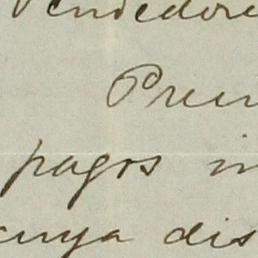 Vendedore
Prim
pagos in
cuya dis